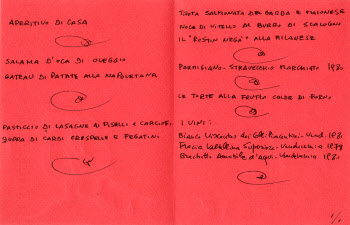 APERITIVO DI CASA
SALAMA D'OCA DI OLEGGIO
GATEAU DI PATATE ALLA NAPOLETANA
PASTICCIO DI LASAGNE AI PISELLI E CARCIOFI
ZUPPA DI CARDI CRESPELLE E FEGATINI
TROTA SALMONATA DEL GARDA E MAIONESE
NOCE DI VITELLO AL BURRO DI SCALOGNO
IL "ROSTIN NEGÀ" ALLA MILANESE
PARMIGIANO STRAVECCHIO MARCHIATO 1980
LE TORTE ALLA FRUTTA CALDE DI FORNO
I VINI:
Bianco
Vend. 1981
Franco Valtellina Vendemmia 1979
Brachetto Amabile d'Aqui - Vendemmia 1981